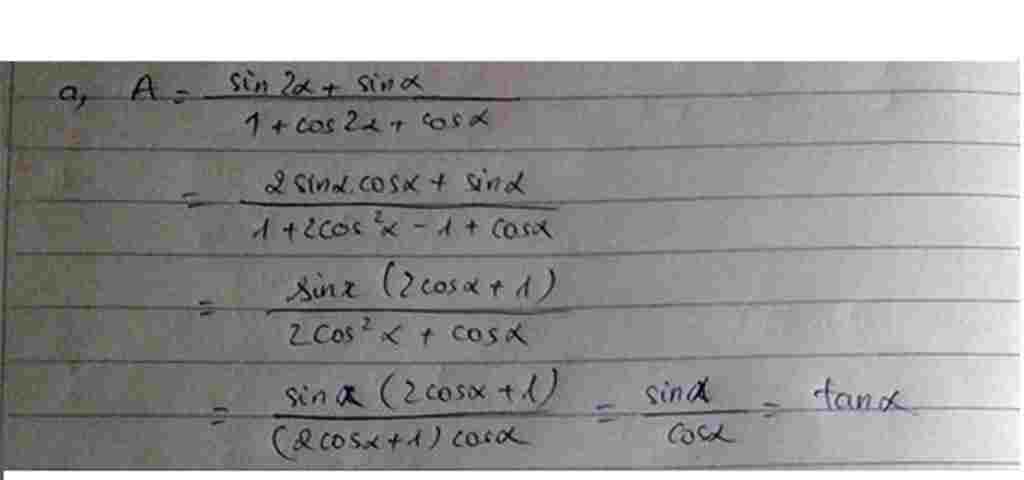 a, A = (sin 2α + sin α) / (1 + cos 2α + cos α)
= (2 sin α . cos α + sin α) / (1 + 2 cos² α - 1 + cos α)
= sin x (2 cos α + 1) / (2 cos² α + cos α)
= sin α (2 cos α + 1) / ((2 cos α + 1) cos α) = sin α / cos α = tan α